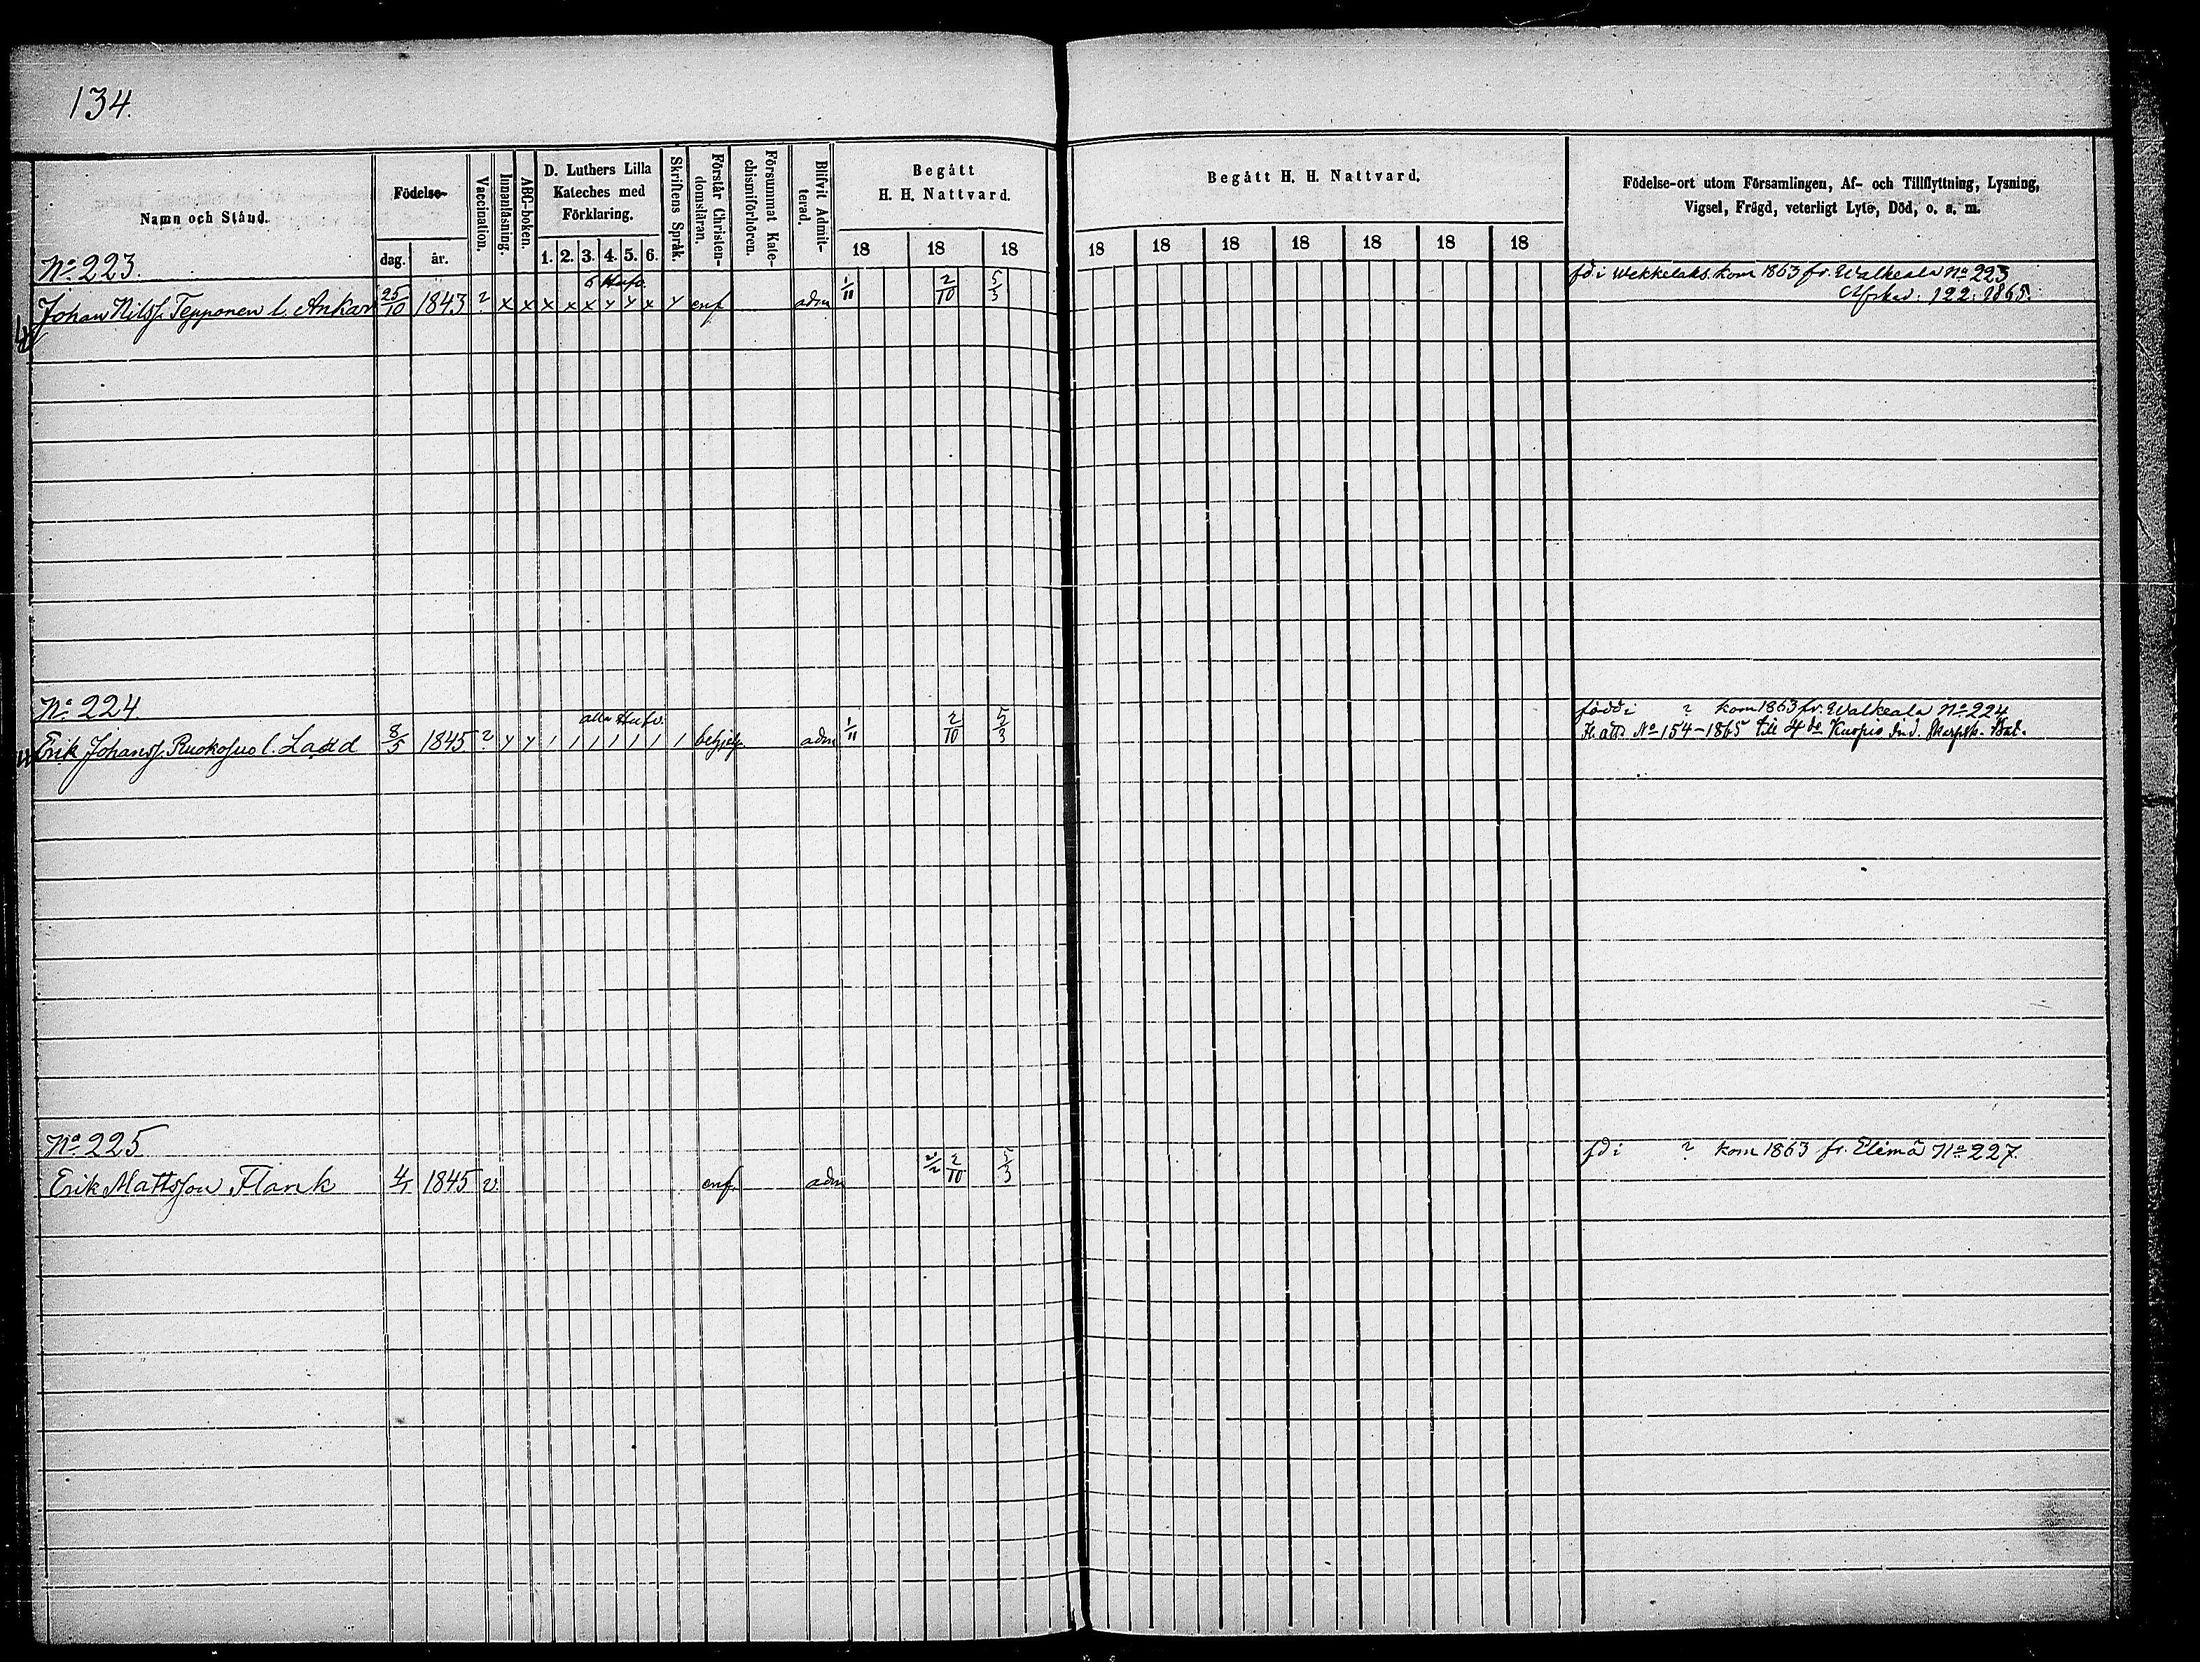 134.
Namn och Stånd.
Födelse-
dag.
år.
Vaccination.
Innanläsning.
ABC-boken.
D. Luthers Lilla
Kateches med
Förklaring.
1. 2. 3. 4. 5. 6.
Skriftens Språk.
Förstår Christen-
domsläran.
Försummat Kate-
chismiförhören.
Blifvit Admit-
terad.
Begått
H. H. Nattvard.
18 18 18
Begått H. H. Nattvard.
18 18 18 18 18 18 18
Födelse-ort utom Församlingen, Af- och Tillflyttning, Lysning,
Vigsel, Frägd, veterligt Lyte, Död, o. s. m.
No 223.
5 Hufv.
Johan Nilsf. Tepponen l. Ankar 25/10 1843 ? x x x x x y y x y enf adm 1/11 2/10 5/3
fd i Wekkelaks. kom 1863 fr. Walkeala No 223
Afsked. 122. 1865.
No 224.
alla Hufv.
Erik Johansf. Ruokosuo l. Ladd 8/5 1845 ? y y / / / / / / / behjelp adm 1/11 2/10 5/3
född i ? kom 1863 fr. Walkeala No 224
Fl. att. No 154-1865 till 4de Kuopio Ind. Skarpsk. Bat.
No 225
Erik Mattsson Flank 4/1 1845 v. enf. adm 2/10 5/3
fd i ? kom 1863 fr. Elimä No 227.